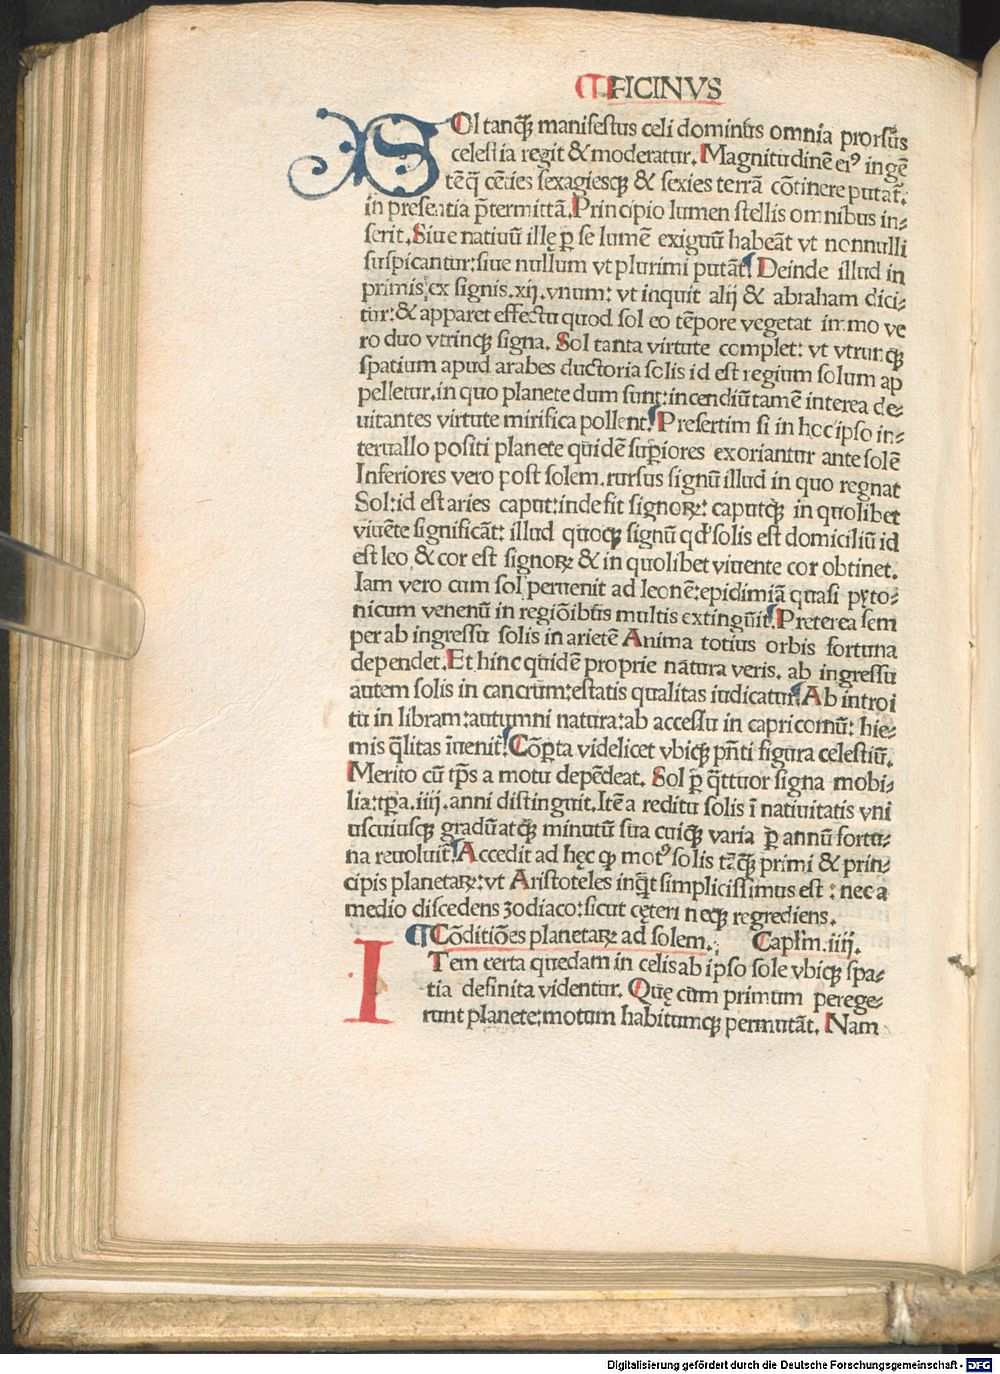 FICINVS
SOl tanꝗ̃ manifestus celi dominus omnia prorsus
celestia regit & moderatur. Magnitudinē eiꝰ ingē
tē q̄ cēties sexagiesꝗ & sexies terrā cōtinere putat̄.
in presentia p̄termittā. Principio lumen stellis omnibus in⸗
serit. Siue natiuū illę ꝑ se lumē exiguū habeāt vt nonnulli
suspicantur: siue nullum vt plurimi putāt. Deinde illud in
primis ex signis .xij. vnum: vt inquit alij & abraham dici⸗
tur: & apparet effectu quod sol eo tēpore vegetat immo ve
ro duo vtrinꝗ signa. Sol tanta virtute complet: vt vtrunꝗ
spatium apud arabes ductoria solis id est regium solum ap
pelletur. in quo planete dum sunt: incendiū tamē interea de⸗
uitantes virtute mirifica pollent. Presertim si in hoc ipso in⸗
teruallo positi planete quidē superiores exoriantur ante solē
Inferiores vero post solem. rursus signū illud in quo regnat
Sol: id est aries caput: inde fit signoꝝ: caputꝗ in quolibet
viuēte significāt: illud quoꝗ signū qd' solis est domiciliū id
est leo & cor est signoꝝ & in quolibet viuente cor obtinet.
Iam vero cum sol peruenit ad leonē: epidimiā quasi pyto⸗
nicum venenū in regiōibus multis extinguit. Preterea sem
per ab ingressu solis in arietē Anima totius orbis fortuna
dependet. Et hinc quidē proprie natura veris. ab ingressu
autem solis in cancrum: estatis qualitas iudicatur. Ab introi
tu in libram: autumni natura: ab accessu in capricornū: hie⸗
mis q̄litas īuenit̄. Cōꝑta videlicet vbiꝗ pn̄ti figura celestiū.
Merito cū tp̄s a motu depēdeat. Sol ꝑ q̄ttuor signa mobi⸗
lia: tp̄a .iiij. anni distinguit. Itē a reditu solis ī natiuitatis vni
uscuiusꝗ gradū atꝗ minutū sua cuiꝗ varia ꝑ annū fortu⸗
na reuoluit̄. Accedit ad hęc ꝙ motꝰ solis tāꝗ̃ primi & prin⸗
cipis planetaꝝ: vt Aristoteles inq̄t simplicissimus est: nec a
medio discedens zodiaco: sicut cęteri neꝗ regrediens.
¶ Cōditiōes planetaꝝ ad solem. Capl'm. iiij.
ITem certa quedam in celis ab ipso sole vbiꝗ spa⸗
tia definita videntur. Quę cum primum perege⸗
runt planete: motum habitumꝗ permutāt. Nam
Digitalisierung gefördert durch die Deutsche Forschungsgemeinschaft - DFG